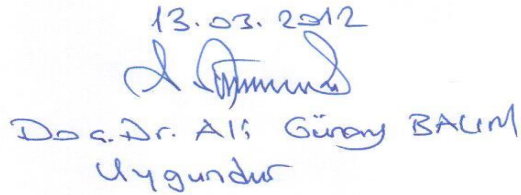 13.03.2012
Doç.Dr. Ali Günay BALIM
Uygundur